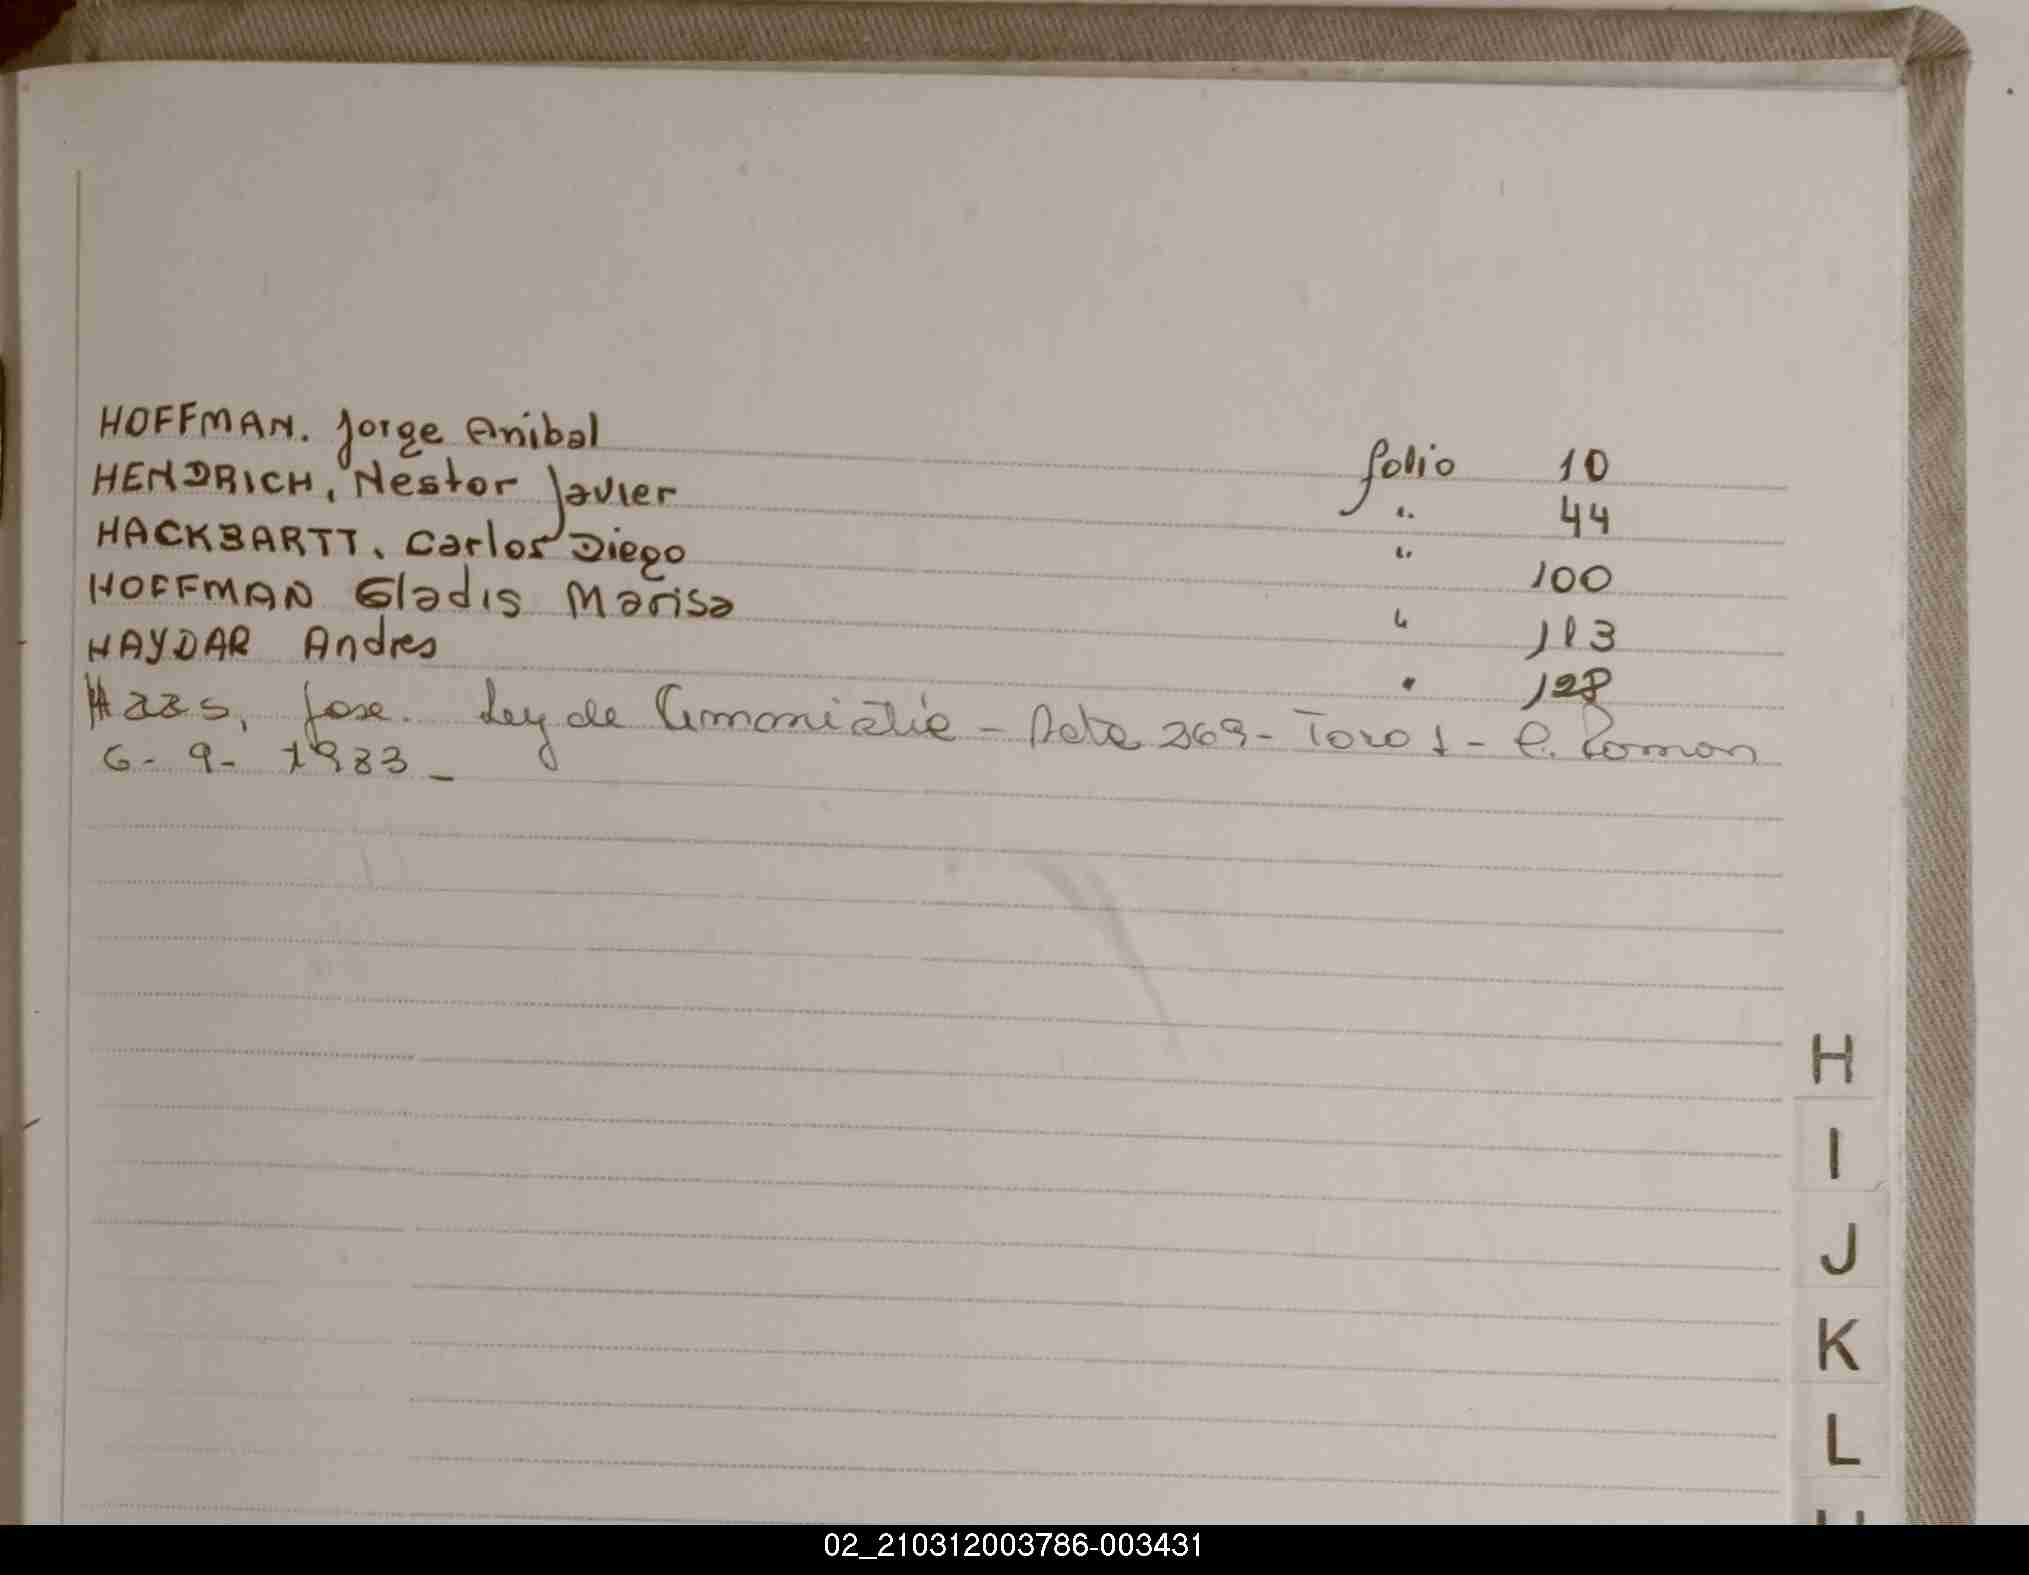 HOFFMAN. Jorge Anibal folio 10
HENDRICH, Nestor Javier " 44
HACKBARTT, Carlos Diego " 100
HOFFMAN Gladis Marisa " 113
HAYDAR Andres " 128
Haas, Jose. Ley de Amonistie - Acta 269 - Tomo 1 - C. Roman
6-9-1983_
H
I
J
K
L
02_210312003786-003431